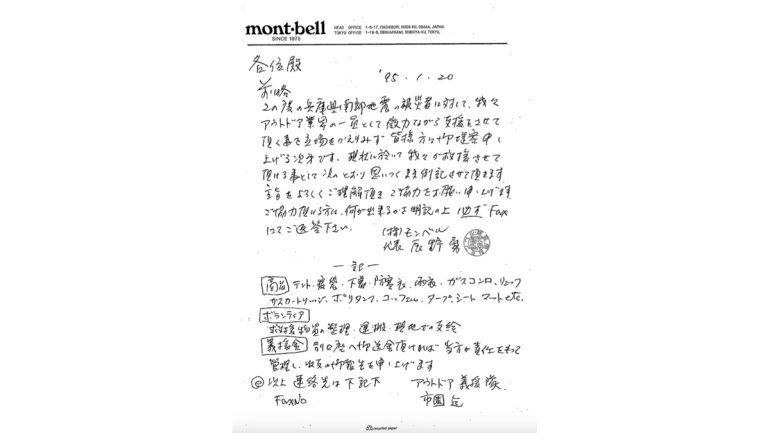 mont-bell
SINCE 1975
HEAD OFFICE 1-6-17, ITACHIBORI, NISHI-KU, OSAKA, JAPAN.
TOKYO OFFICE EBISUMINAMI, SHIBUYA-KU, TOKYO.
各位殿
'95.1.20
前略
この度の兵庫県南部地震の被災者に対して、我々
アウトドア業界の一員として微力ながら支援をさせて
頂く事を立場をかえりみず 皆様方に御提案申し
上げる次第です。現状に於いて我々が救援させて
頂ける事として次のとおり思いつくまま列記させて頂きます
主旨をよろしくご理解頂き ご協力をお願い申し上げます
ご協力頂ける方は、何が出来るかを明記の上 必ずFax
にてご返答下さい。
(株)モンベル
代表 辰野 勇
— 記 —
商品 テント・寝袋・下着・防寒衣・雨衣・ガスコンロ、リュック
ガスカートリッジ、ポリタンク、コッフェル、タープ、シート マット etc.
ボランティア
救援物資の整理・運搬・現地での支給
義援金 別口座へ御送金頂ければ 当方が責任をもって
管理し、収支の御報告を申し上げます
◎以上 連絡先は下記下
アウトドア義援隊
FaxNo
recycled paper